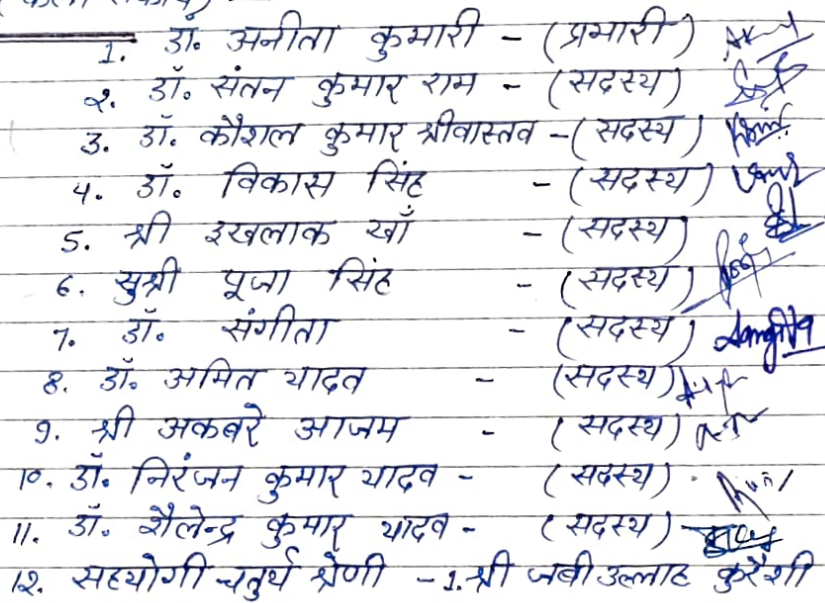 1. डॉ. अनीता कुमारी - (प्रभारी)
२. डॉ. संतन कुमार राम - (सदस्य)
3. डॉ. कौशल कुमार श्रीवास्तव - (सदस्य)
4. डॉ. विकास सिंह - (सदस्य)
5. श्री इखलाक खाँ - (सदस्य)
6. सुश्री पूजा सिंह - (सदस्य)
7. डॉ. संगीता - (सदस्य) Sangita
8. डॉ. अमित यादव - (सदस्य)
9. श्री अकबरे आजम - (सदस्य)
10. डॉ. निरंजन कुमार यादव - (सदस्य)
11. डॉ. शैलेन्द्र कुमार यादव - (सदस्य)
1२. सहयोगी चतुर्थ श्रेणी - 1. श्री जबीउल्लाह कुरैशी